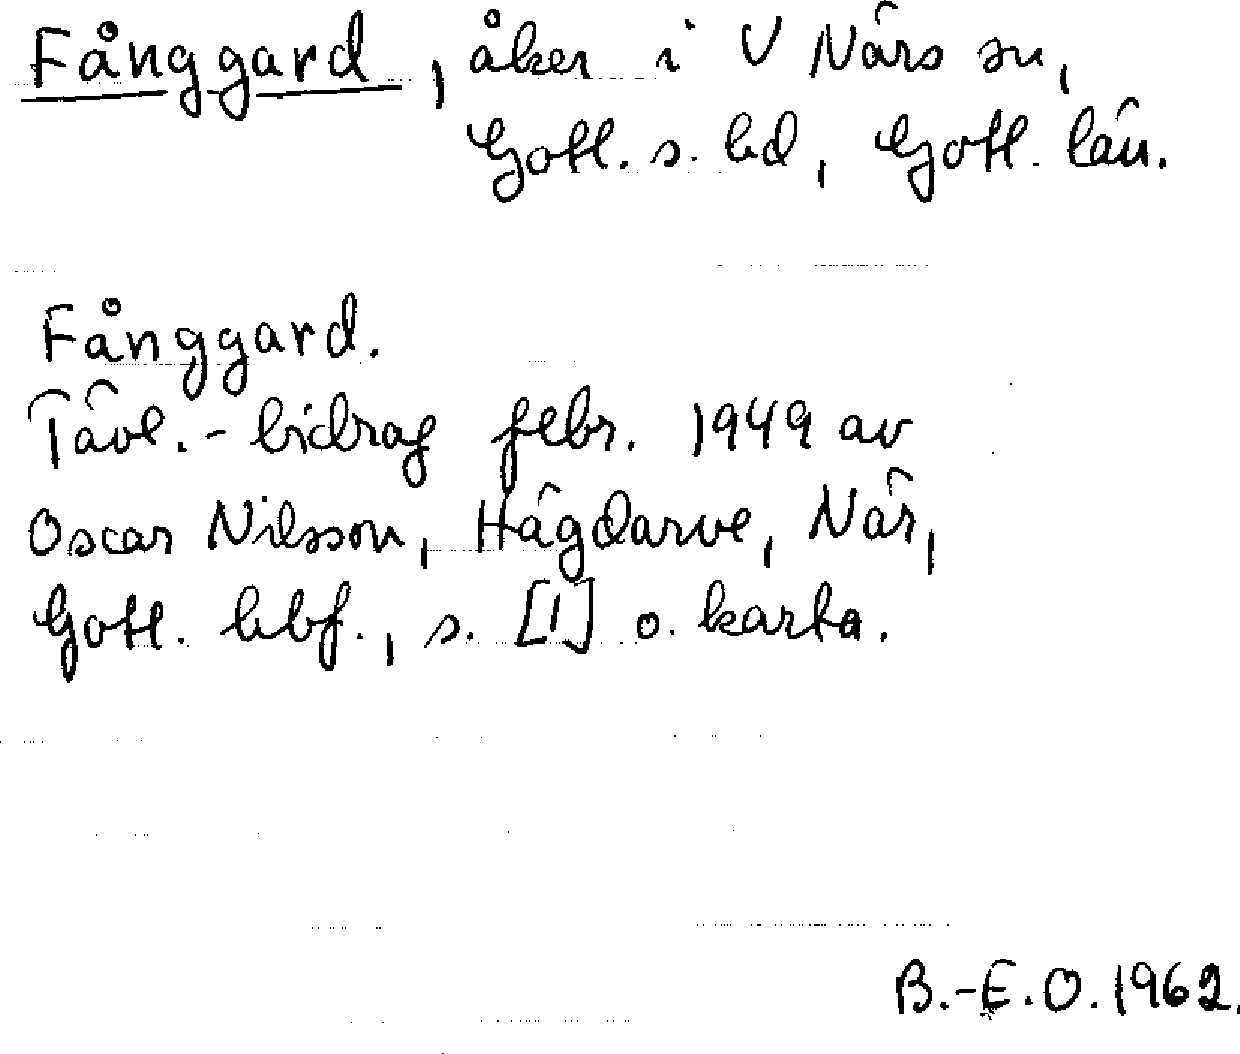 Fånggard, åker i V När​s sn,
Gotl. s. hd, Gotl. län.
Fånggard.
Tävl.-bidrag febr. 1949 av
Oscar Nilsson, Hägdarve, När,
Gotl. hbf., s. [1] o. karta.
B.-E.O. 1962.